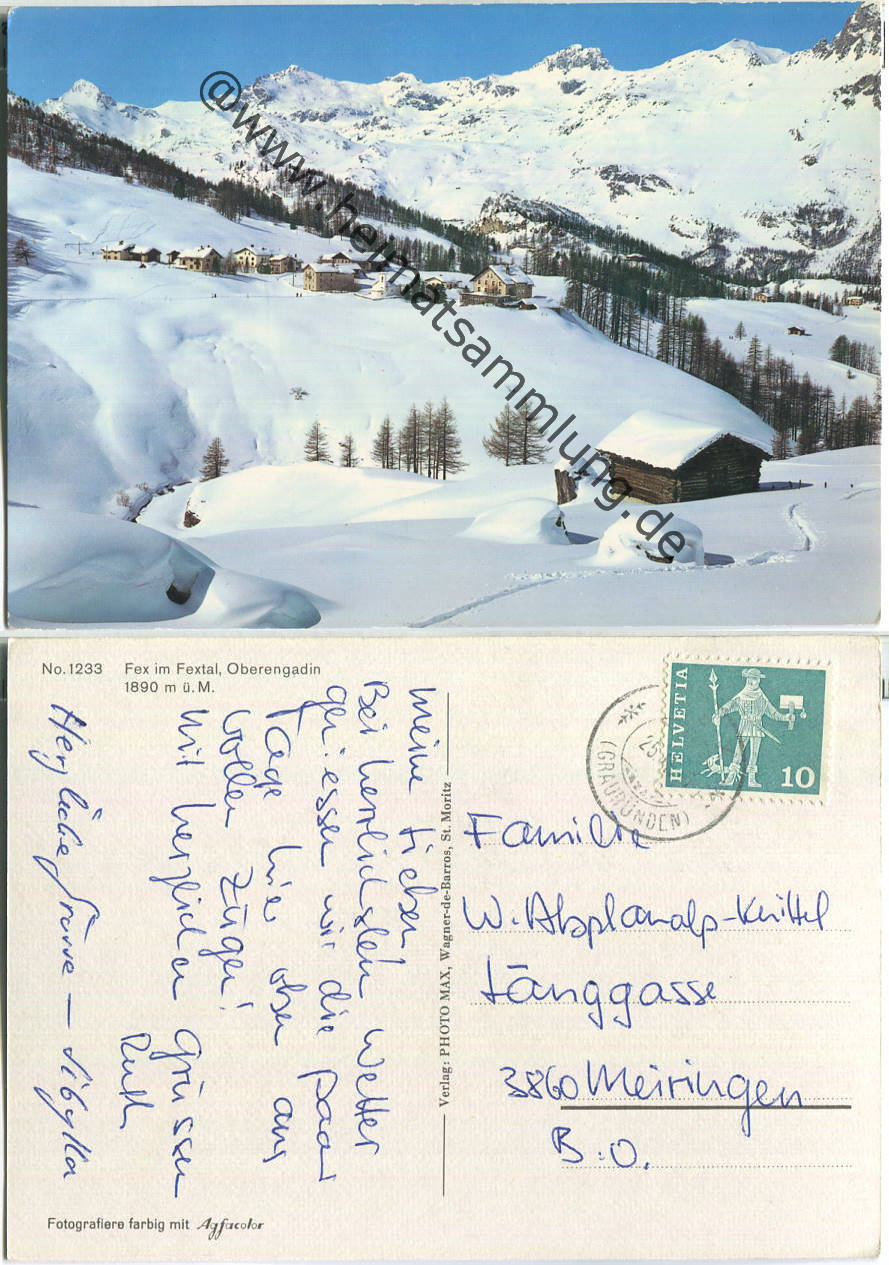 @www.heimatsammlung.de
No. 1233 Fex im Fextal, Oberengadin
1890 m ü. M.
Meine Lieben
Bei herrlichstem Wetter
geniessen wir die paar
Tage hier oben aus
vollen Zügen!
Mit herzlichen Grüssen
Ruth
Herzliche Grüsse – Sibylla
Verlag: PHOTO MAX, Wagner-de-Barros, St. Moritz
HELVETIA
10
(GRAUBÜNDEN)
Familie
W. Abplanalp-Knittel
Länggasse
3860 Meiringen
B.O.
Fotografiere farbig mit Agfacolor